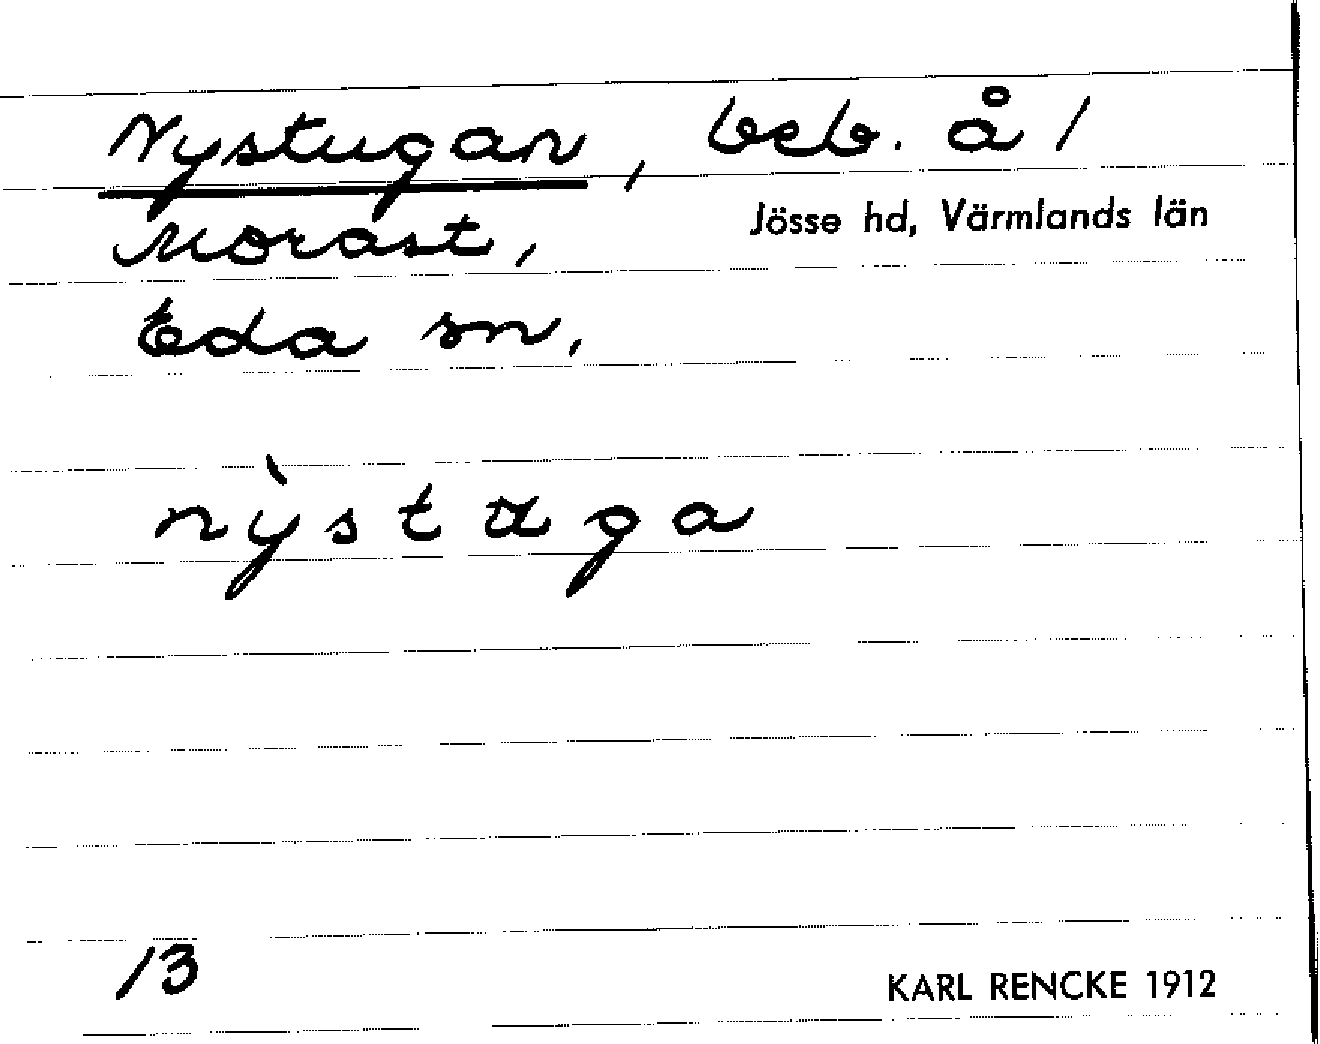 Nystugan, beb. å /
Jösse hd, Värmlands län
Morast,
Eda sn,
nỳstuga
13
KARL RENCKE 1912